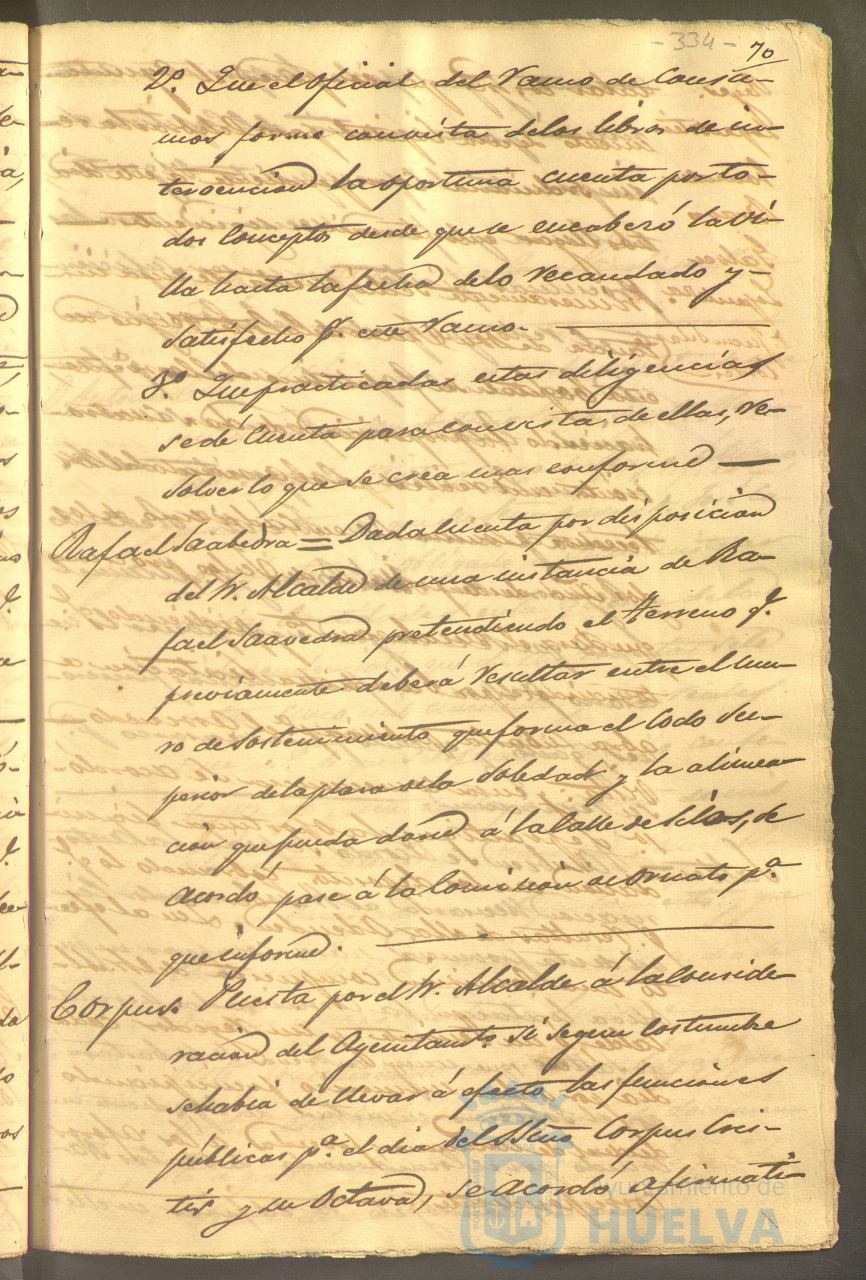 - 334 -
70
2º. Que el oficial del Ramo de Consu-
mos forme con vista de los libros de in-
tervencion la oportuna cuenta por to-
dos Conceptos desde que se encabezó la Vi-
lla hasta la fecha de lo recaudado y
satisfecho pr. este Ramo.
3º. Que practicadas estas diligencias
se dé Cuenta para con vista de ellas, re-
solver lo que se crea mas conforme
Rafael Saabedra = Dada Cuenta por disposicion
del Sr. Alcalde de una instancia de Ra-
fael Saavedra pretendiendo el Terreno qe.
previamente deberá resultar entre el mu-
ro de sostenimiento que forma el lado Su-
perior de la plaza de la Soledad y la alinea
cion que pueda darse á la Calle de Silos, se
Acordó pase á la Comision de Ornato pª
que informe.
Corpus. Puesta por el Sr. Alcalde á la conside-
racion del Ayuntamto. si segun costumbre
se habia de llevar á efecto las funciones
públicas pª. el dia del SSmo Corpus Cris-
tis y su Octava, se acordó afirmati-
Ayuntamiento de
HUELVA